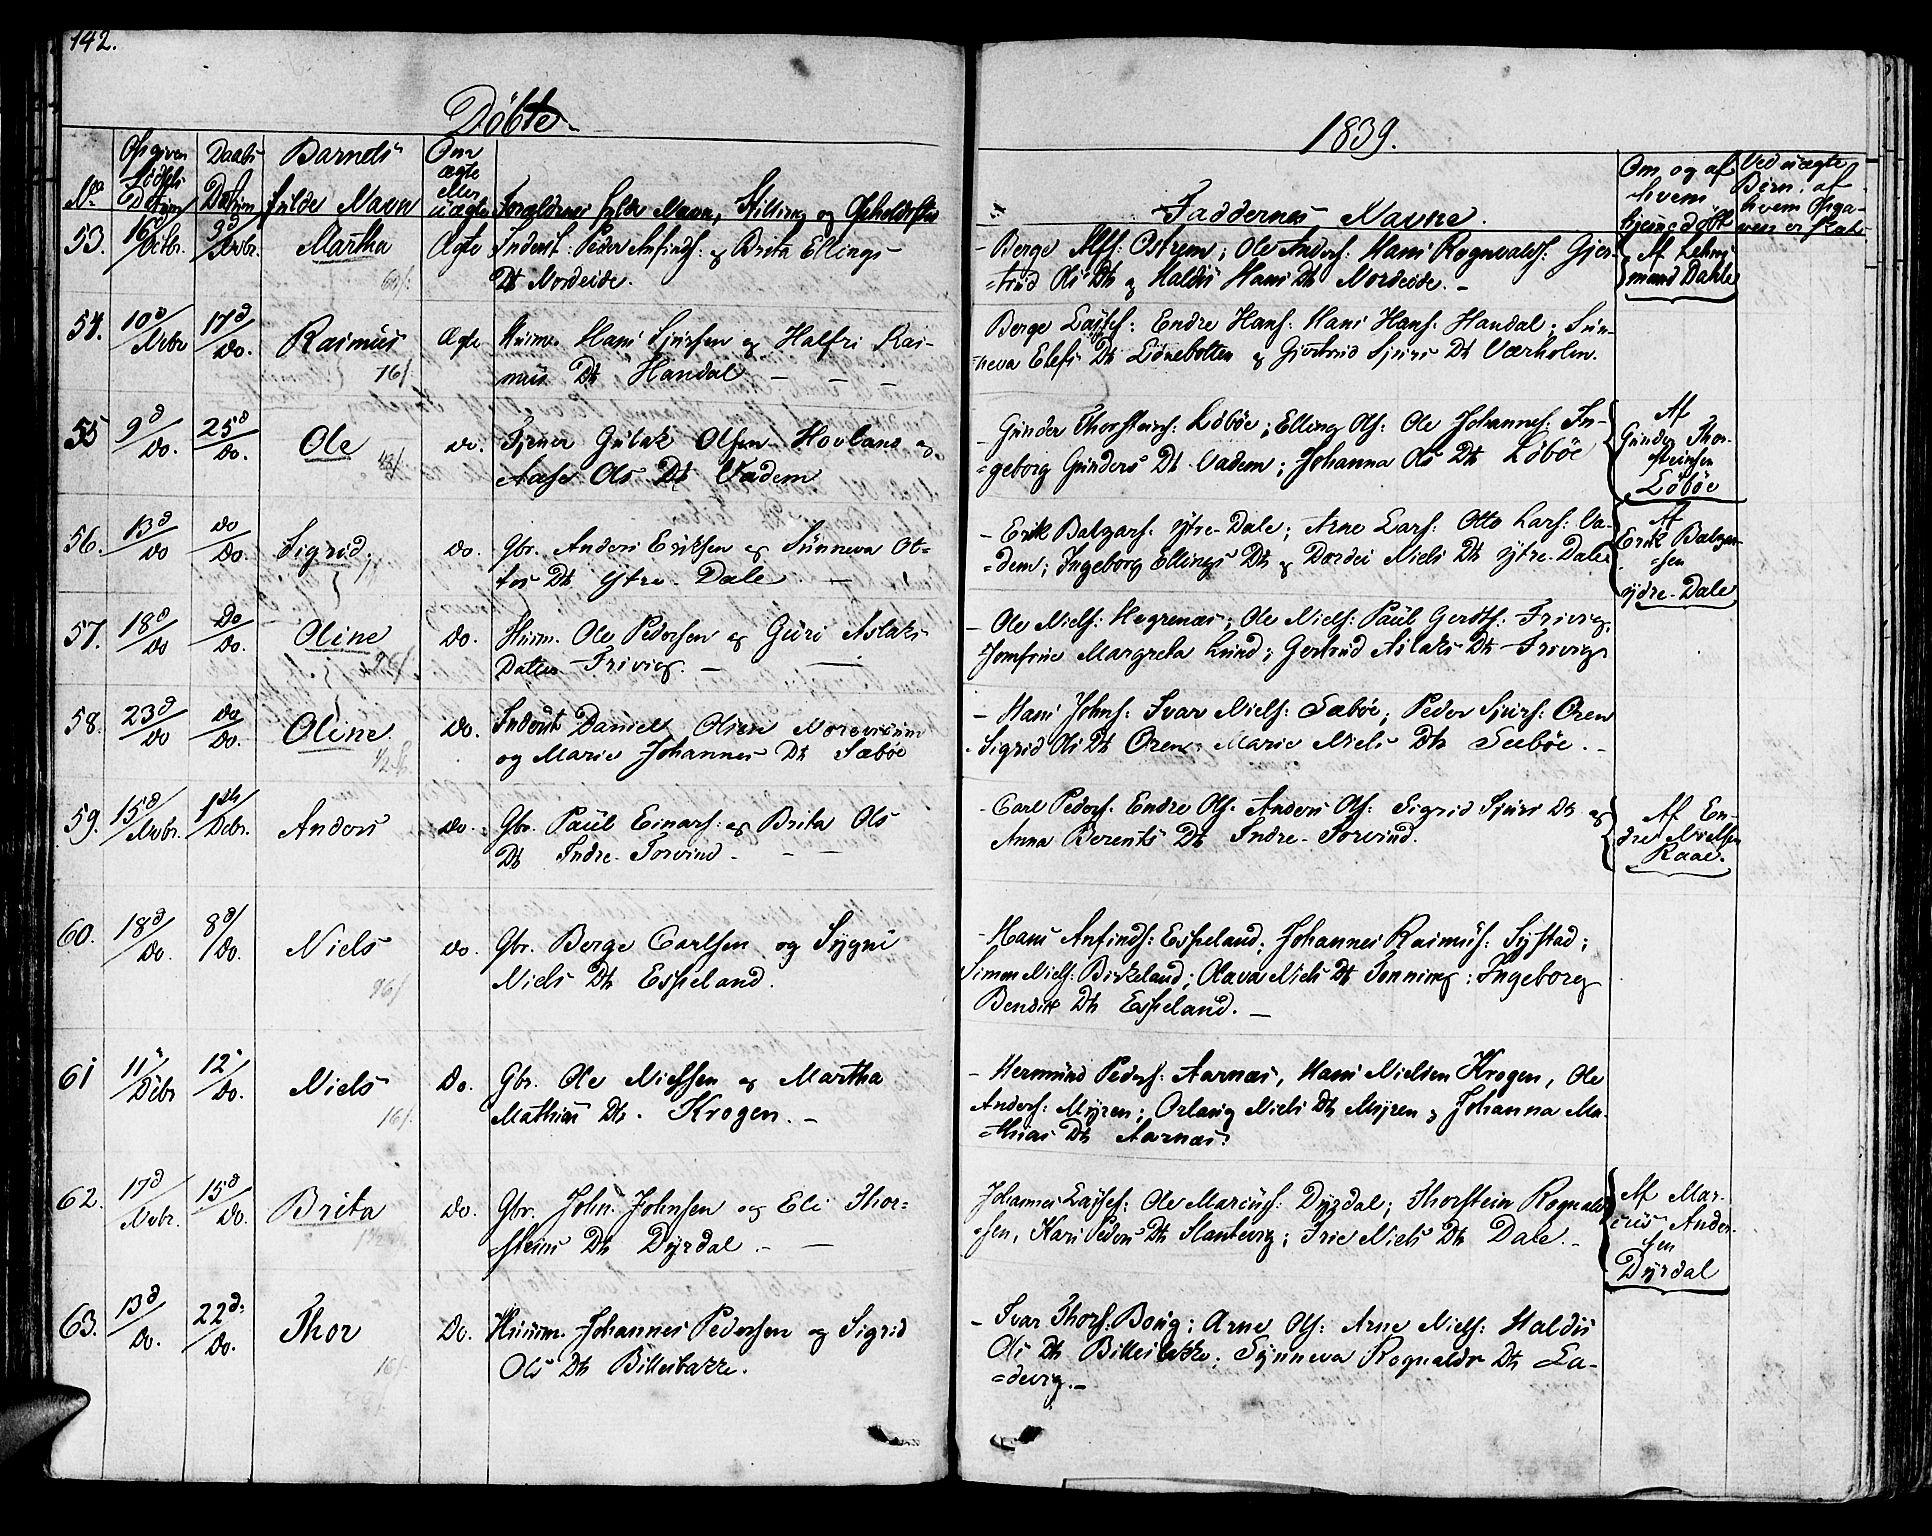 142.
Döbte
1839.
No
Opgiven Födsels Datum
Daabs Datum
Barnets fulde Navn
Om ægte eller uægte
Forældrenes fulde Navne, Stilling og Opholdssted
Faddernes Navne.
Om, og af hvem hjemmedöbt
Ved uægte Börn, af hvem Opgaven er
53. 16d/Octbr. 9d/Nvbr. Martha Ægte Inderst: Peder Anfinds: og Brita Ellings
Dt Nordeide.
- Berge Olss: Ostrem; Ole Anders: Hans Rognvalds: Gjer-
=trud Ols Dt og Haldis Hans Dt Nordeide. -
Af Lehns-
mand Dahle
54. 10d/Nvbr 17d/Do. Rasmus Ægte Huusm. Hans Sjursen og Halfri Ras-
mus Dt Handal - - -
16/
Berge Lass: Endre Hans: Hans Hans: Handal; Sun-
neva Elefs Dt Lönebotten og Gjertrud Sjurs Dt Værholm.
55 9d/Do. 25d/Do. Ole do. Tjener Gulak Olsen Hovland og
Aase Ols Dt Vadem
48/
- Gunder Thorsteins: Löböe; Elling Ols: Ole Johannes: In-
=geborg Gunders Dt Vadem; Johanna Ols Dt Löböe
Af
Gunder Thor-
steinsen
Löböe
56. 13d/Do do/Do. Sigrid. do. Gbr. Anders Eriksen og Sünneva Ot-
tos Dt Ytre-Dale -
- Erik Balzars: ytre-Dale; Arne Lars: Otto Lars: Va-
=dem; Ingeborg Ellings Dt og Dordei Niels Dt ytre-Dale
Af
Erik Balzar-
=sen
ydre-Dale
57. 18d/Do Do/Do. Oline do. Huusm. Ole Pedersen og Guri Aslaks
Datter Trivig. -
- Ole Niels: Hegrenæs; Ole Niels: Paul Gerdts: Trivig,
Jomfrue Margreta Lund; Gertrud Aslaks Dt Trivig
58. 23d/Do do/Do. Oline. do. Inderst Daniel Olsen Norevium
og Marie Johannes Dt Sæböe
- Hans Johns: Ivar Niels: Sæböe; Peder Sjurs: Oren
Sigrid Ols Dt Oren; Marie Niels Dt Sæböe. -
59. 15d/Nvbr. 1ste/Debr. Anders do. Gbr. Paul Einars: og Brita Ols
Dt Indre-Torvind - - -
- Carl Peders: Endre Ols: Anders Ols: Sigrid Sjurs Dt og
Anna Berents Dt Indre-Torvind.
Af En-
dre Nielsen
Raae.
60. 18d/Do. 8d/Do. Niels do. Gbr. Berge Carlsen og Sygni
Niels Dt Espeland.
96/
- Hans Anfinds: Espeland; Johannes Rasmus: Systad;
Simon Niels: Birkeland; Olava Niels Dt Tenning; Ingeborg
Bendix Dt Espeland. -
61 11/Debr 12/Do. Niels Do. Gbr. Ole Nielssen og Martha
Mathias Dt. Krogen. -
16/.
- Hermund Peders: Aarnæs, Hans Nielsen Krogen, Ole
Anders: Myren; Orlaug Niels Dt Myren og Johanna Ma-
=thias Dt Aarnæs.
62. 17d/Nvbr. 15d/Do. Brita do. Gbr. John Johnsen og Eli Thor-
=steins Dt Dyrdal. - -
Johannes Lass: Ole Marcus: Dyrdal; Thorstein Rognald
=sen, Kari Peders Dt Slantevig; Irie Niels Dt Dale. -
Af Mar-
cus Ander-
sen
Dyrdal
63. 13d/Do. 22d./Do. Thor Do. Huusm. Johannes Pedersen og Sigrid
Ols Dt Billesbakke.
16/
- Ivar Thors: Böug; Arne Ols: Arne Niels: Haldis
Ols Dt Billesbakke; Synneva Rognalds Dt La-
=devig. -